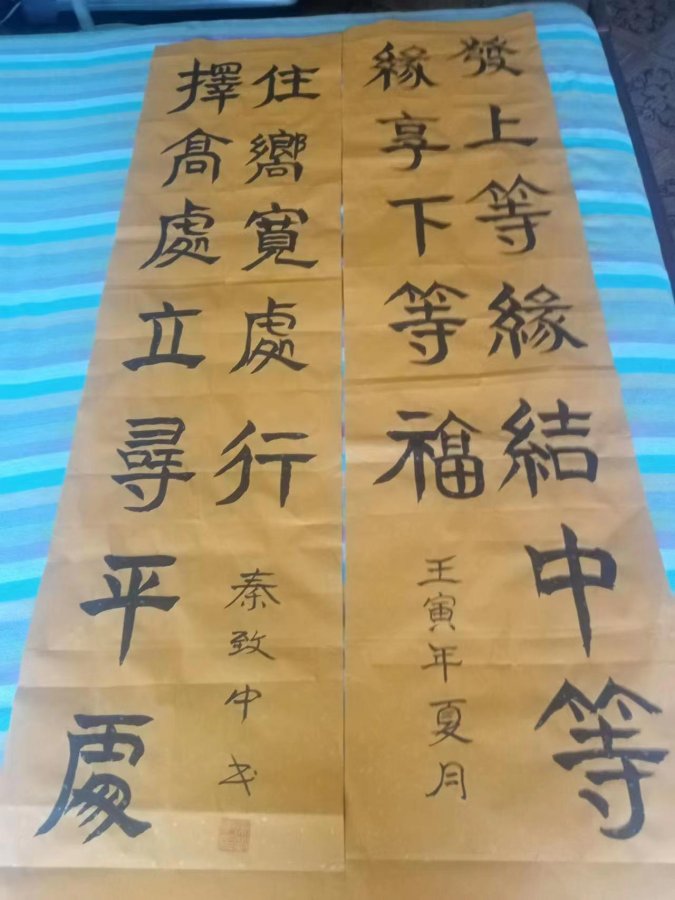 發上等緣結中等
緣享下等福
壬寅年夏月
擇髙處立尋平處
住嚮寬處行
秦致中书